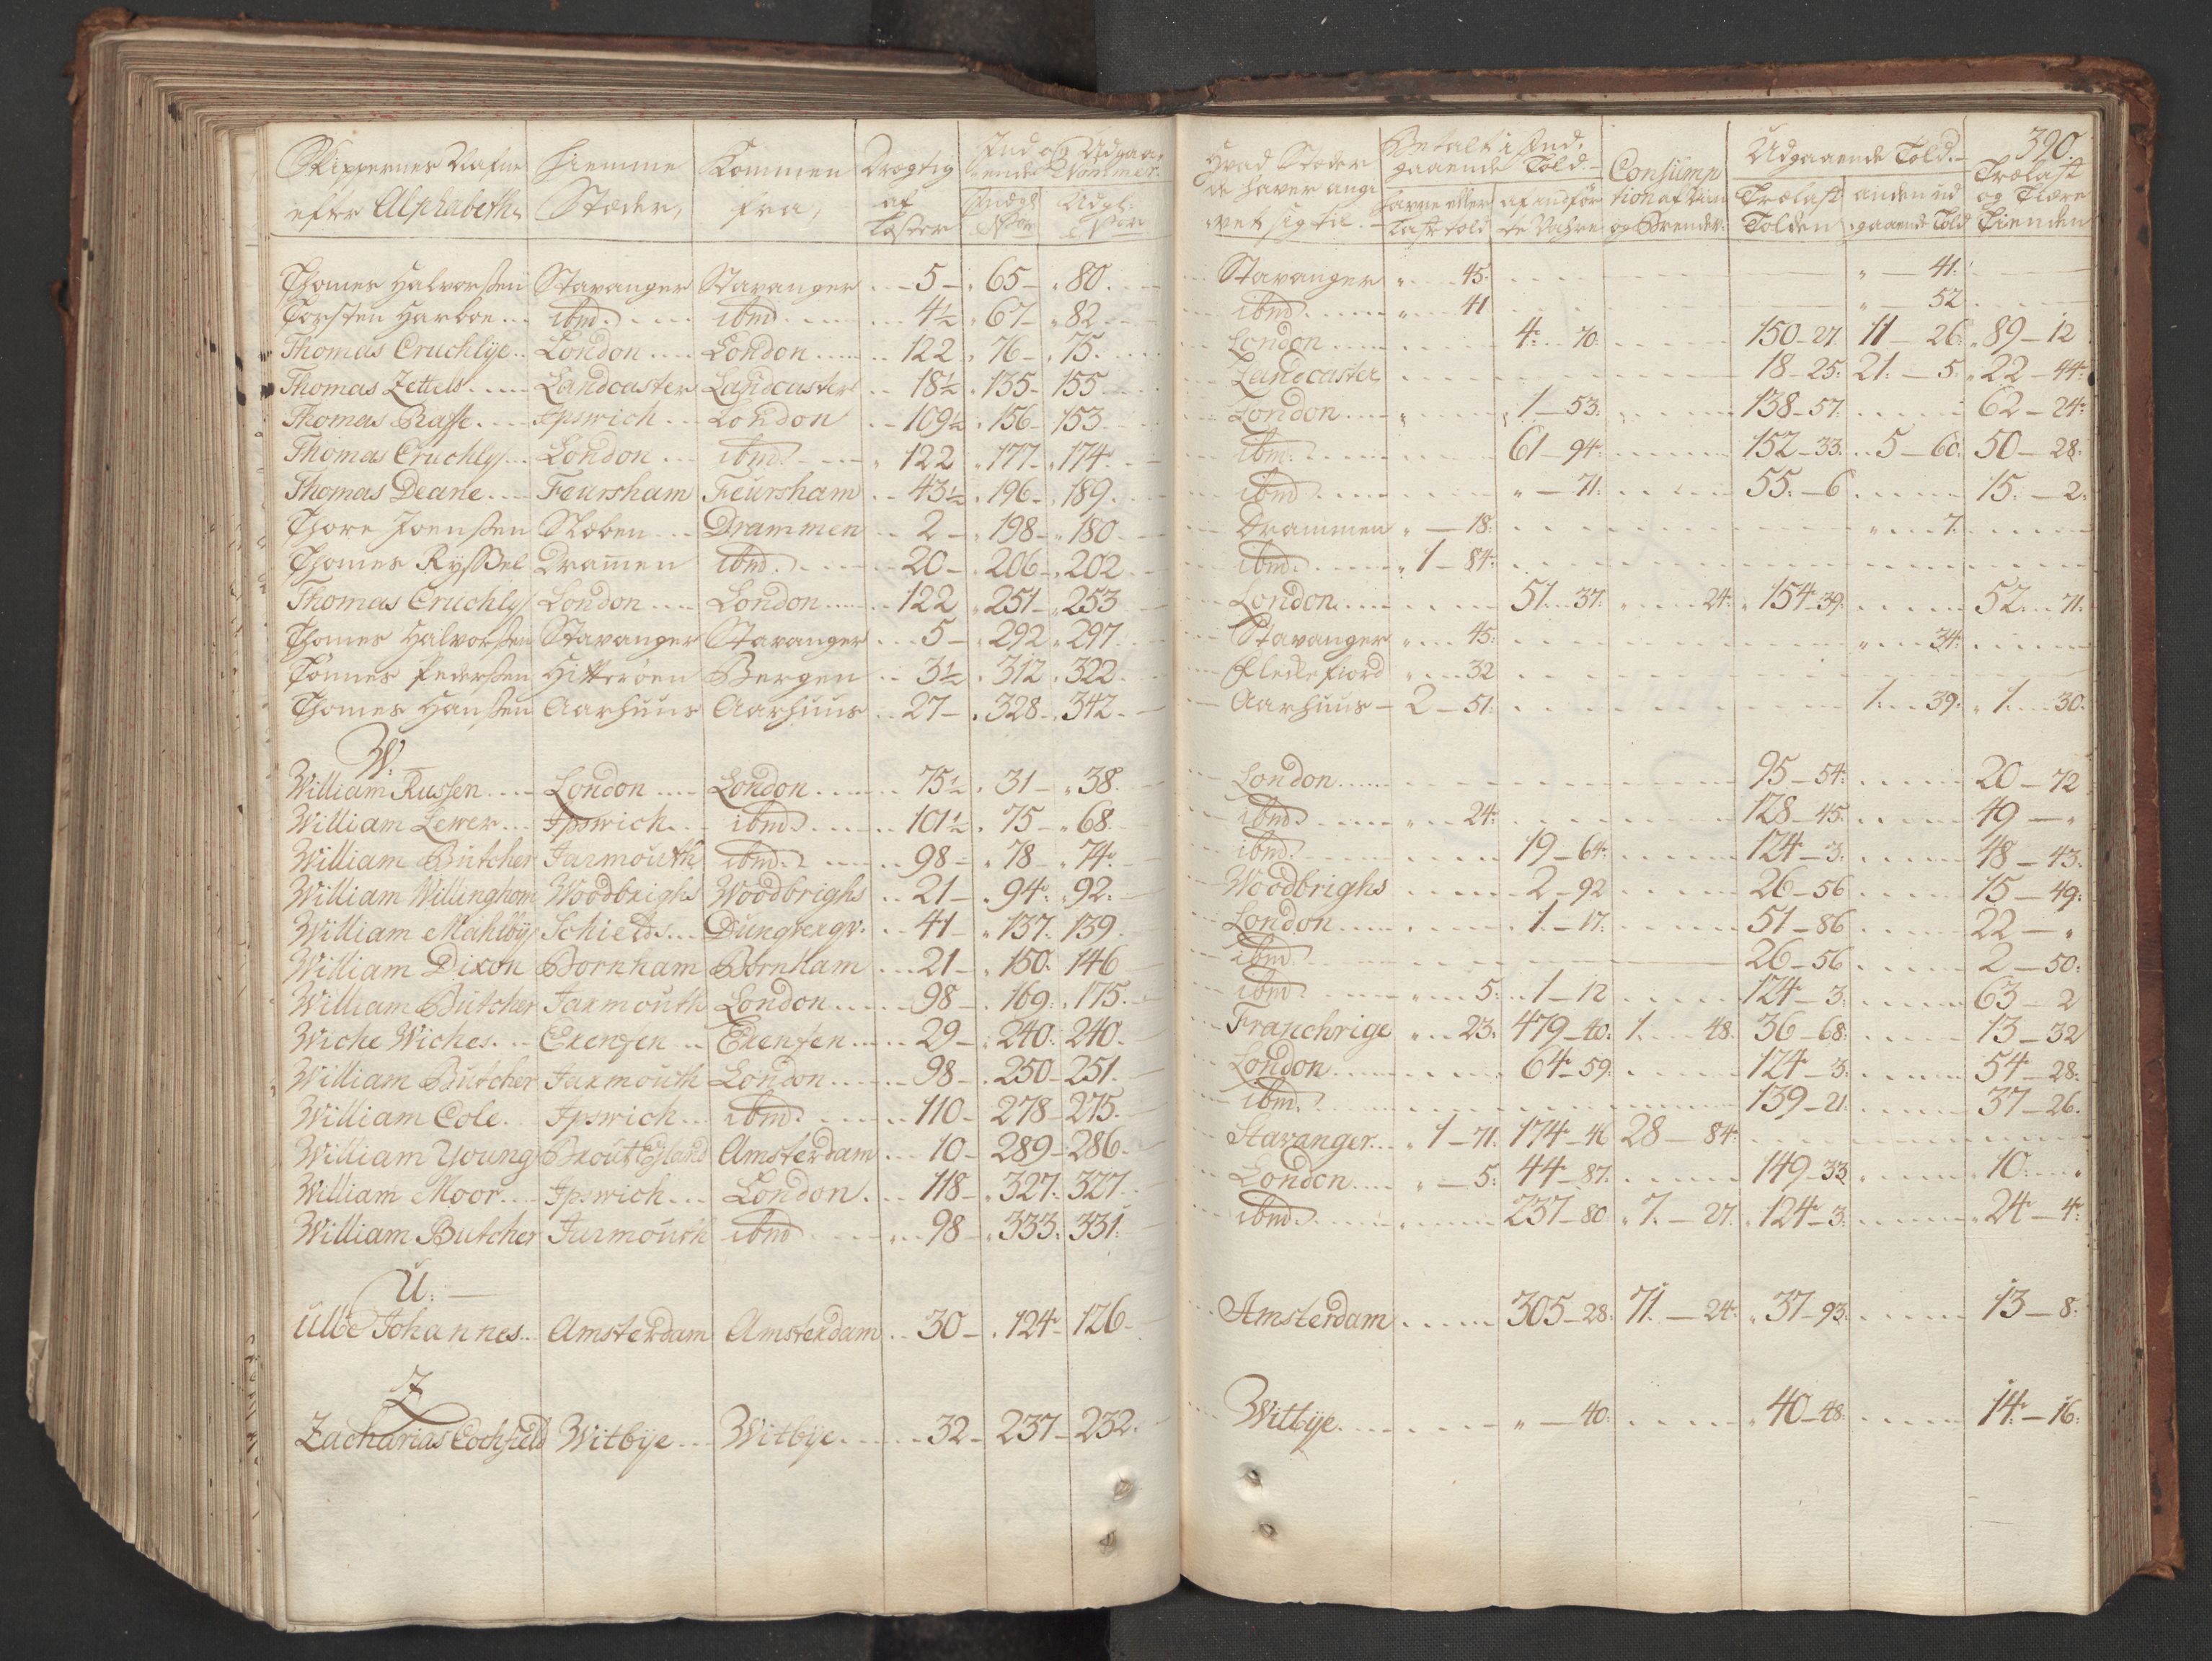 Skippernes Nafne efter Alphabeth | Hiemme Stæder, | Kommen fra, | Drægtig af Læster | Ind og Udgaaende Nommer. Indg: Udg:
Thomes Halvorsen Stavanger Stavanger 5 - 65 - 80.
Torsten Harboe ibm. ibm 4½ 67 - 82
Thomas Cruchlye London London 122 76 - 75.
Thomas Zettels Landcaster Landcaster 18½ 135 - 155
Thomas Ipswich London 109½ 156 153
Thomas Cruchly London ibm. 122 177 - 174.
Thomas Deane Feursham Feursham 43½ 196 - 189.
Thore Joensen Drammen 2 - 198 - 180
Thomes Ryssel Dramen ibm. 20 - 206 - 202
Thomas Cruchly London London 122 251 - 253
Thomes Halvorsen Stavanger Stavanger 5 - 292 - 297
Tönnes Pedersen Hitterøen Bergen 3½ 312 322
Thomes Hansen Aarhuus Aarhuus 27 - 328 - 342.
W.
William Russen London London 75½ 31 - 38.
William Lewer Ipswich ibm. 101½ 75 - 68.
William Butcher Jarmouth ibm. 98 - 78 - 74.
William Willinghom Woodbrighs Woodbrighs 21 - 94 92.
William Mahlby Schields 41 - 137. 139.
William Dixon Bornham Bornham 21 - 150. 146
William Butcher Jarmouth London 98 - 169. 175.
Wiche Wiches. 29 - 240. 240.
William Butcher Jarmouth London 98 - 250 - 251.
William Cole. Ipswich ibm. 110 - 278 - 275.
William Young Amsterdam 10 - 289 - 286
William Moor Ipswich London. 118 - 327. 327
William Butcher Jarmouth ibm 98 - 333. 331.
U.
Ulbe Johannes Amsterdam Amsterdam 30 - 124 - 126
Z
Zacharias Cochfield Witbye Witbye 32 - 237 - 232.
390.
Hvad Stæder de haver angivet sig til. | Betalt i Indgaaende Told. | Consumption | Udgaaende Told. | Trælast og Tiære Tienden
Lasttold | af indførte Vahre | Trælast Tolden | anden udgaaende Told
Stavanger 45. 41.
ibm. 41 52
London 4 - 70. 150 - 27. 11 - 26. 89 - 12
Landcaster 18 - 25. 21. - 5. 22 - 44.
London 1 - 53. 138 - 57. 62 - 24.
ibm. 61 - 94. 152 - 33. 5 - 60. 50 - 28.
ibm - 71. 55. - 6 15. - 2.
Drammen - 18. 7.
ibm. 1 - 84.
London 51. 37. 24. 154 - 39. 52. 71.
Stavanger 45. 34.
Flekkefiord 32
Aarhuus - 2 - 51. 1. 39. 1. 30.
London 95 - 54. 20 - 72
ibm. 24. 128 - 45. 49 -
ibm. 19 - 64. 124 - 3. 48 - 43.
Woodbrighs 2 - 92 26 - 56 15 - 49.
London 1 - 17. 51 - 86 22 -
ibm. 26 - 56 2 - 50.
ibm 5. 1 - 12 124 - 3. 63 - 2
Franchrige 23. 479 - 40. 1. 48. 36 - 68. 13 - 32
London 64 - 59. 124 - 3. 54 - 28.
ibm. 139 - 21. 37 - 26.
Stavanger 1 - 71. 174 - 46 28 - 84.
London - 5. 44 - 87. 149 - 33 10.
ibm. 237 - 80 7. - 27. 124 - 3. 24 - 4.
Amsterdam 305 - 28. 71. - 24. 37 - 93. 13 - 8.
Witbye - 40. 40 - 48. 14 - 16.